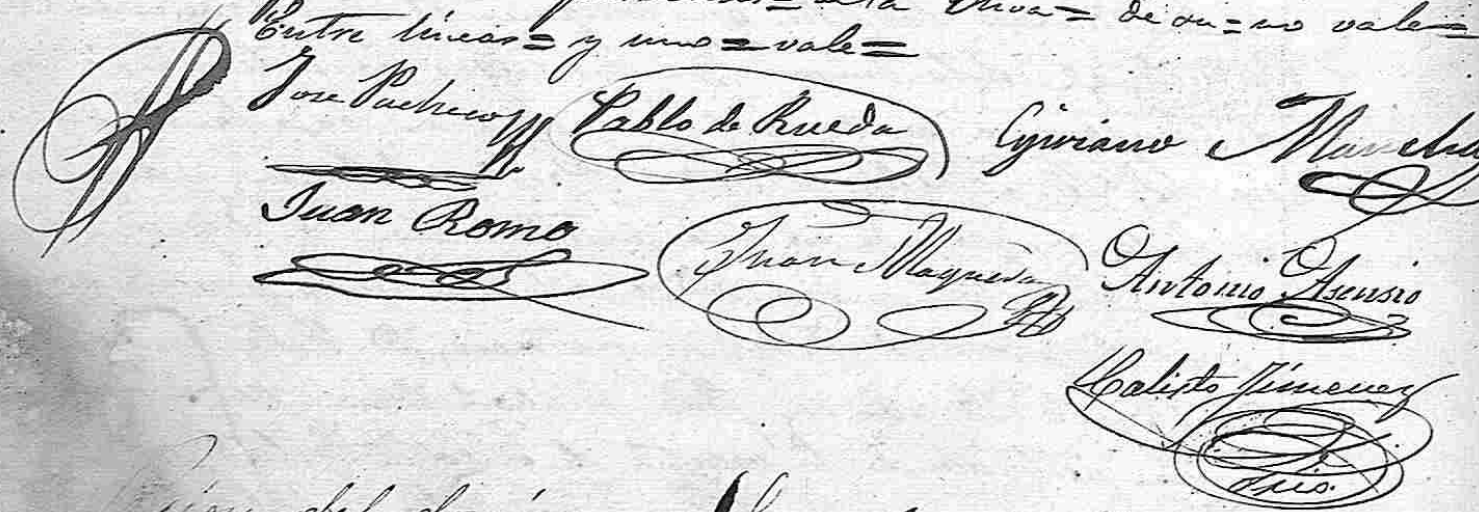 la Oliva = de su = no vale =
Entre lineas = y uno = vale =
Jose Pacheco Pablo de Rueda Cipriano
Juan Romo Juan Maqueda Antonio Asensio
Calisto Jimenez
Srio.